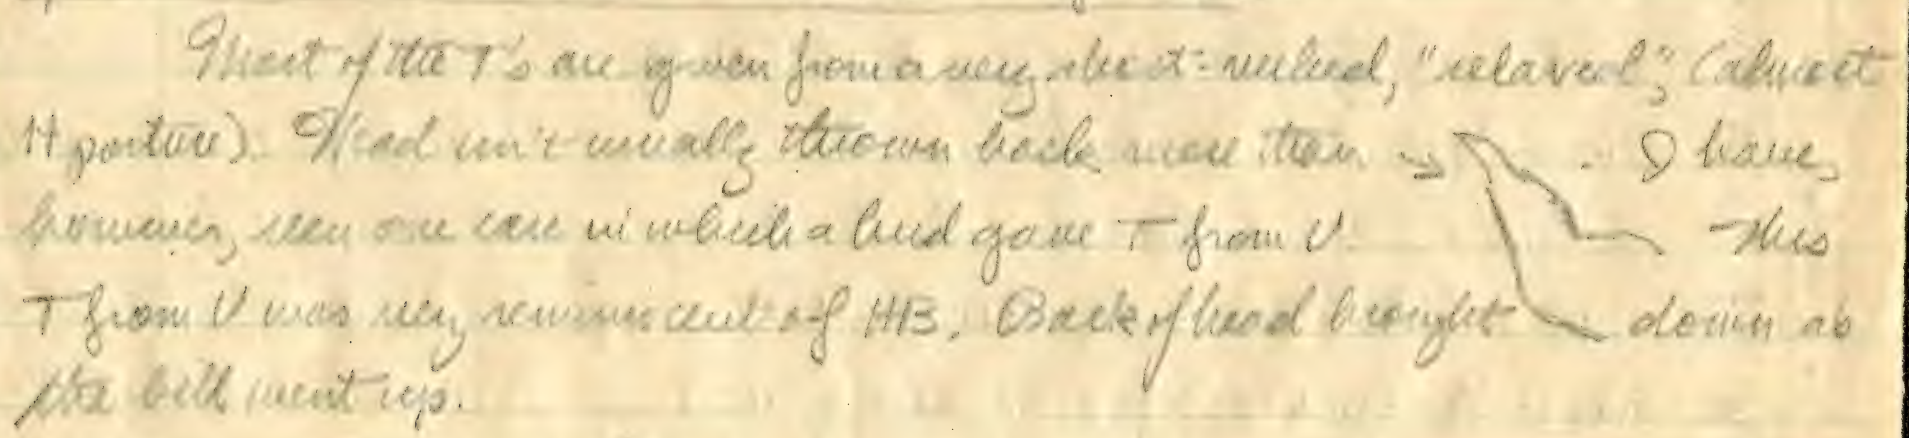 Most of the T's are given from a very short-necked, "relaxed", (almost
H posture). Head isn't usually thrown back more than → . I have,
however, seen one case in which a bird gave T from U. This
T from U was very reminiscent of HB. Back of head brought down as
the bill went up.